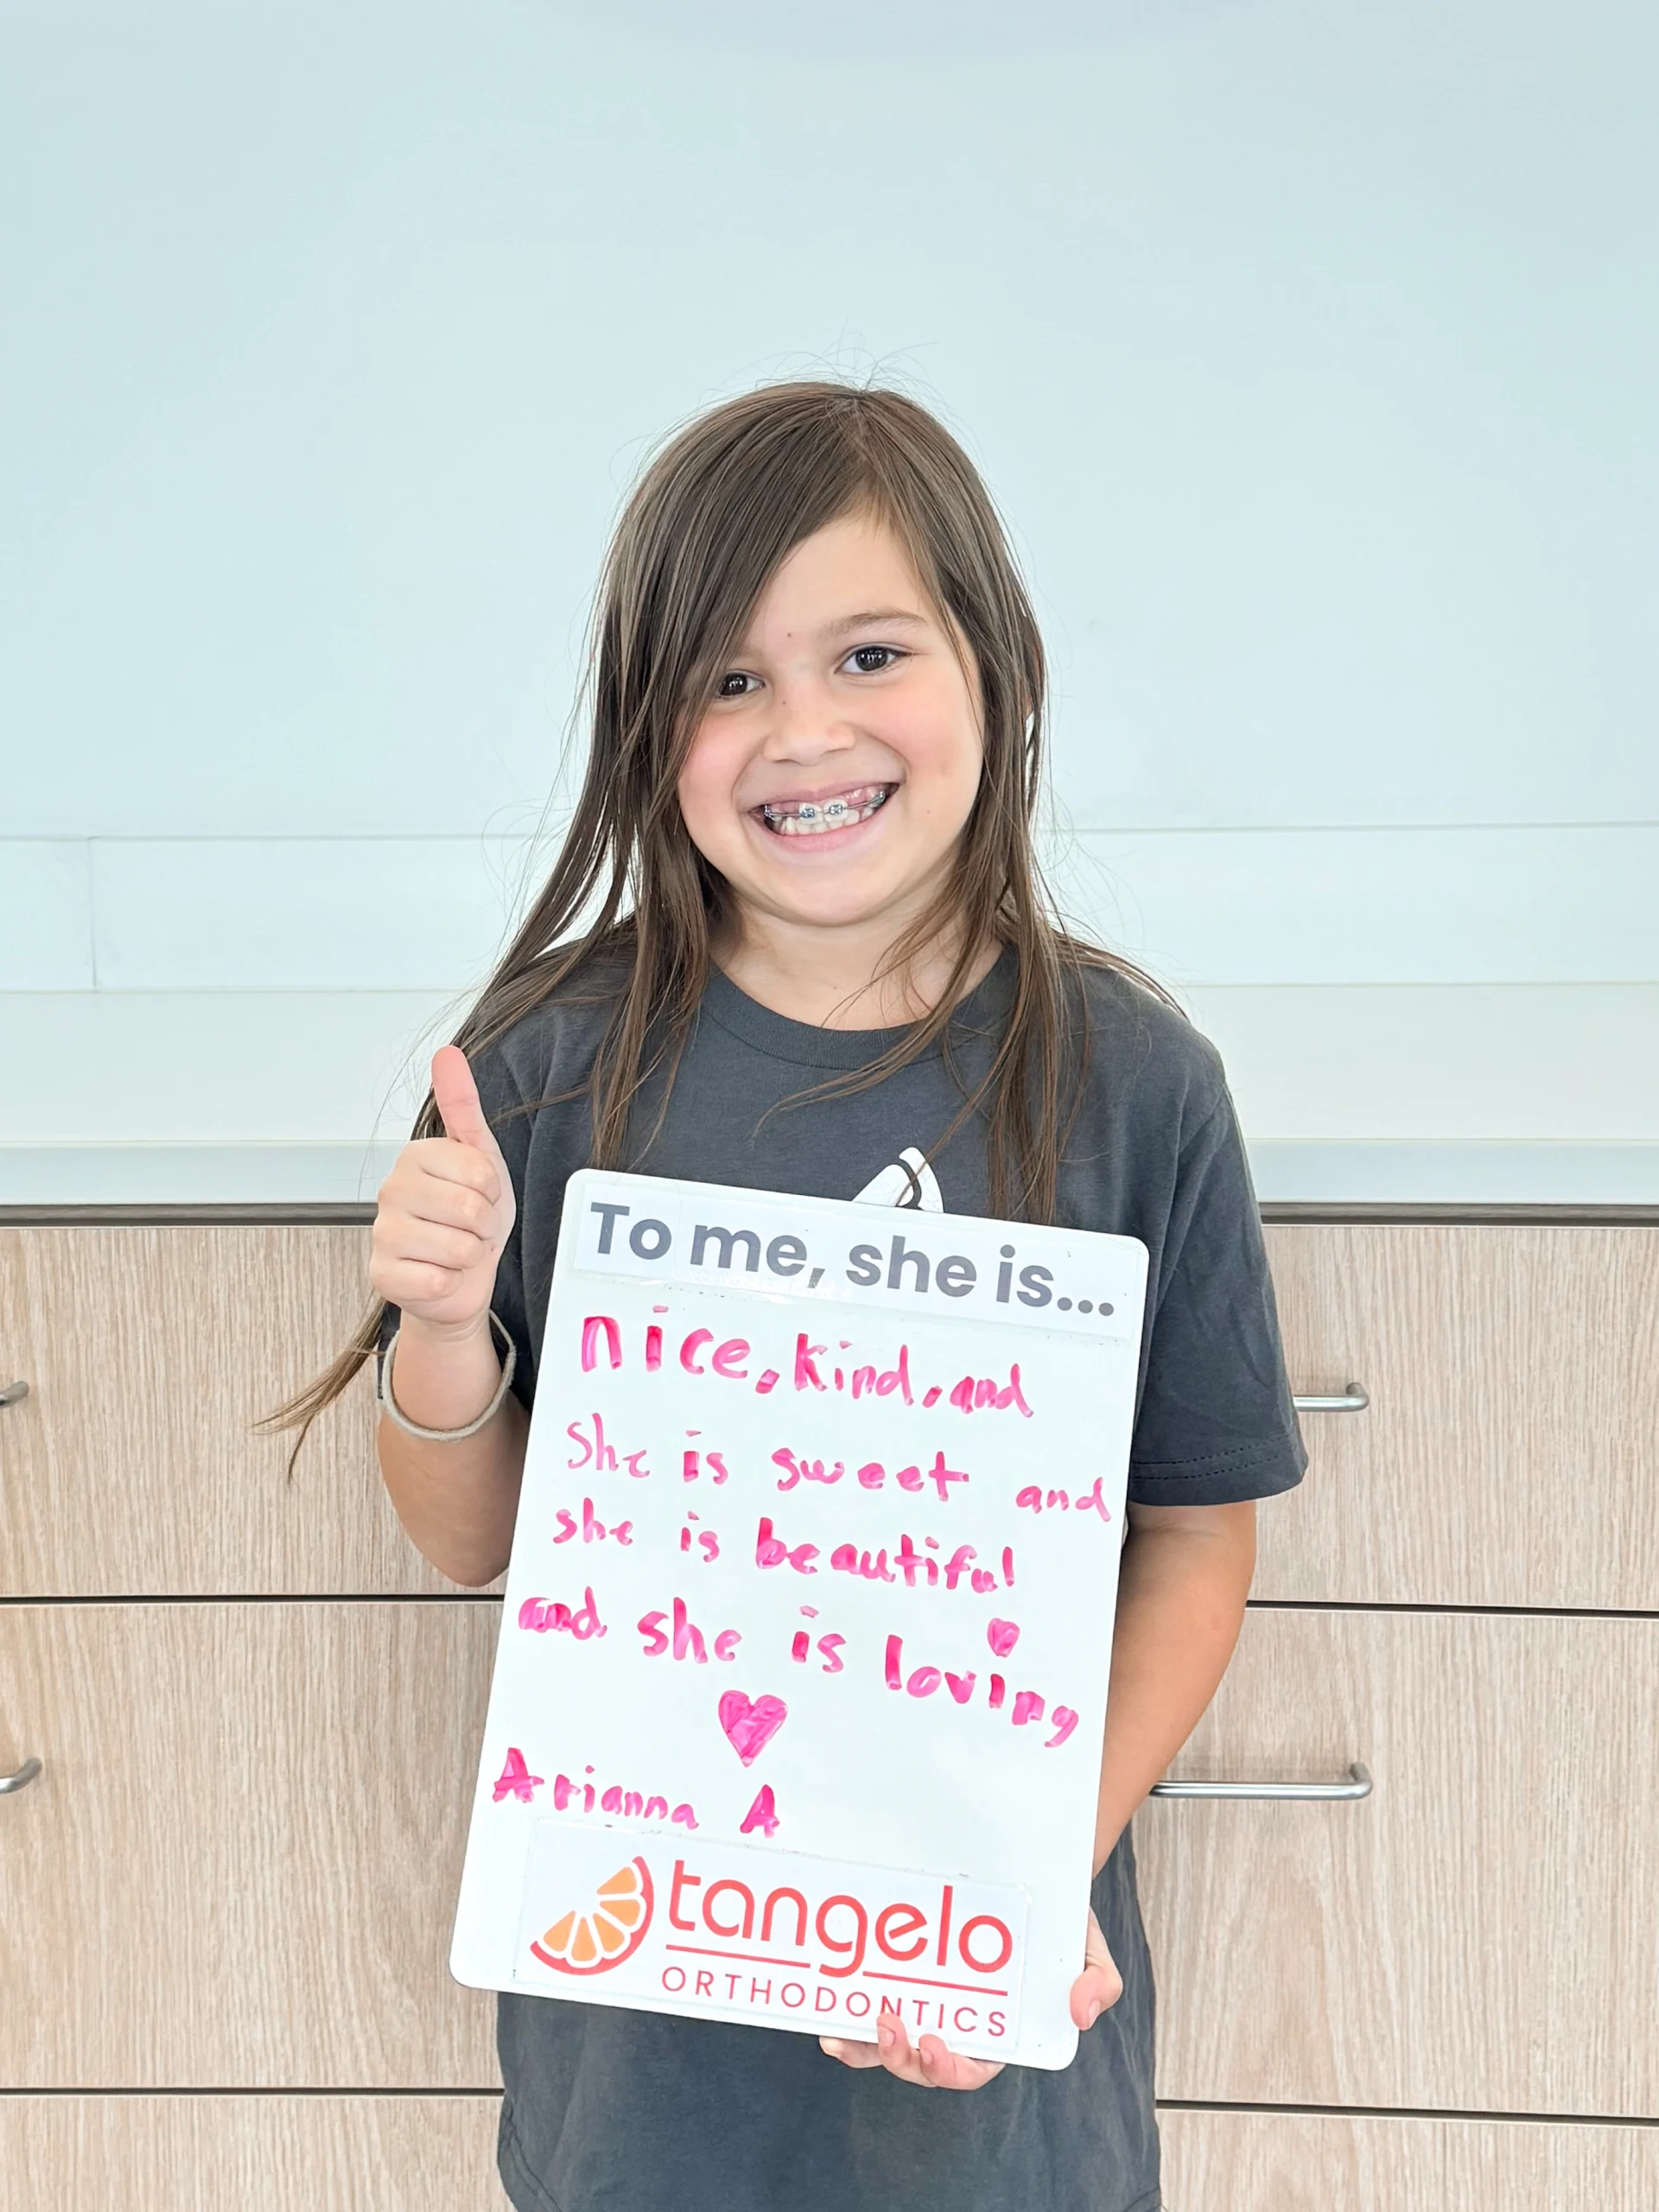 To me, she is...
nice, kind, and
She is sweet and
she is beautiful
and she is loving
Arianna A
tangelo
ORTHODONTICS